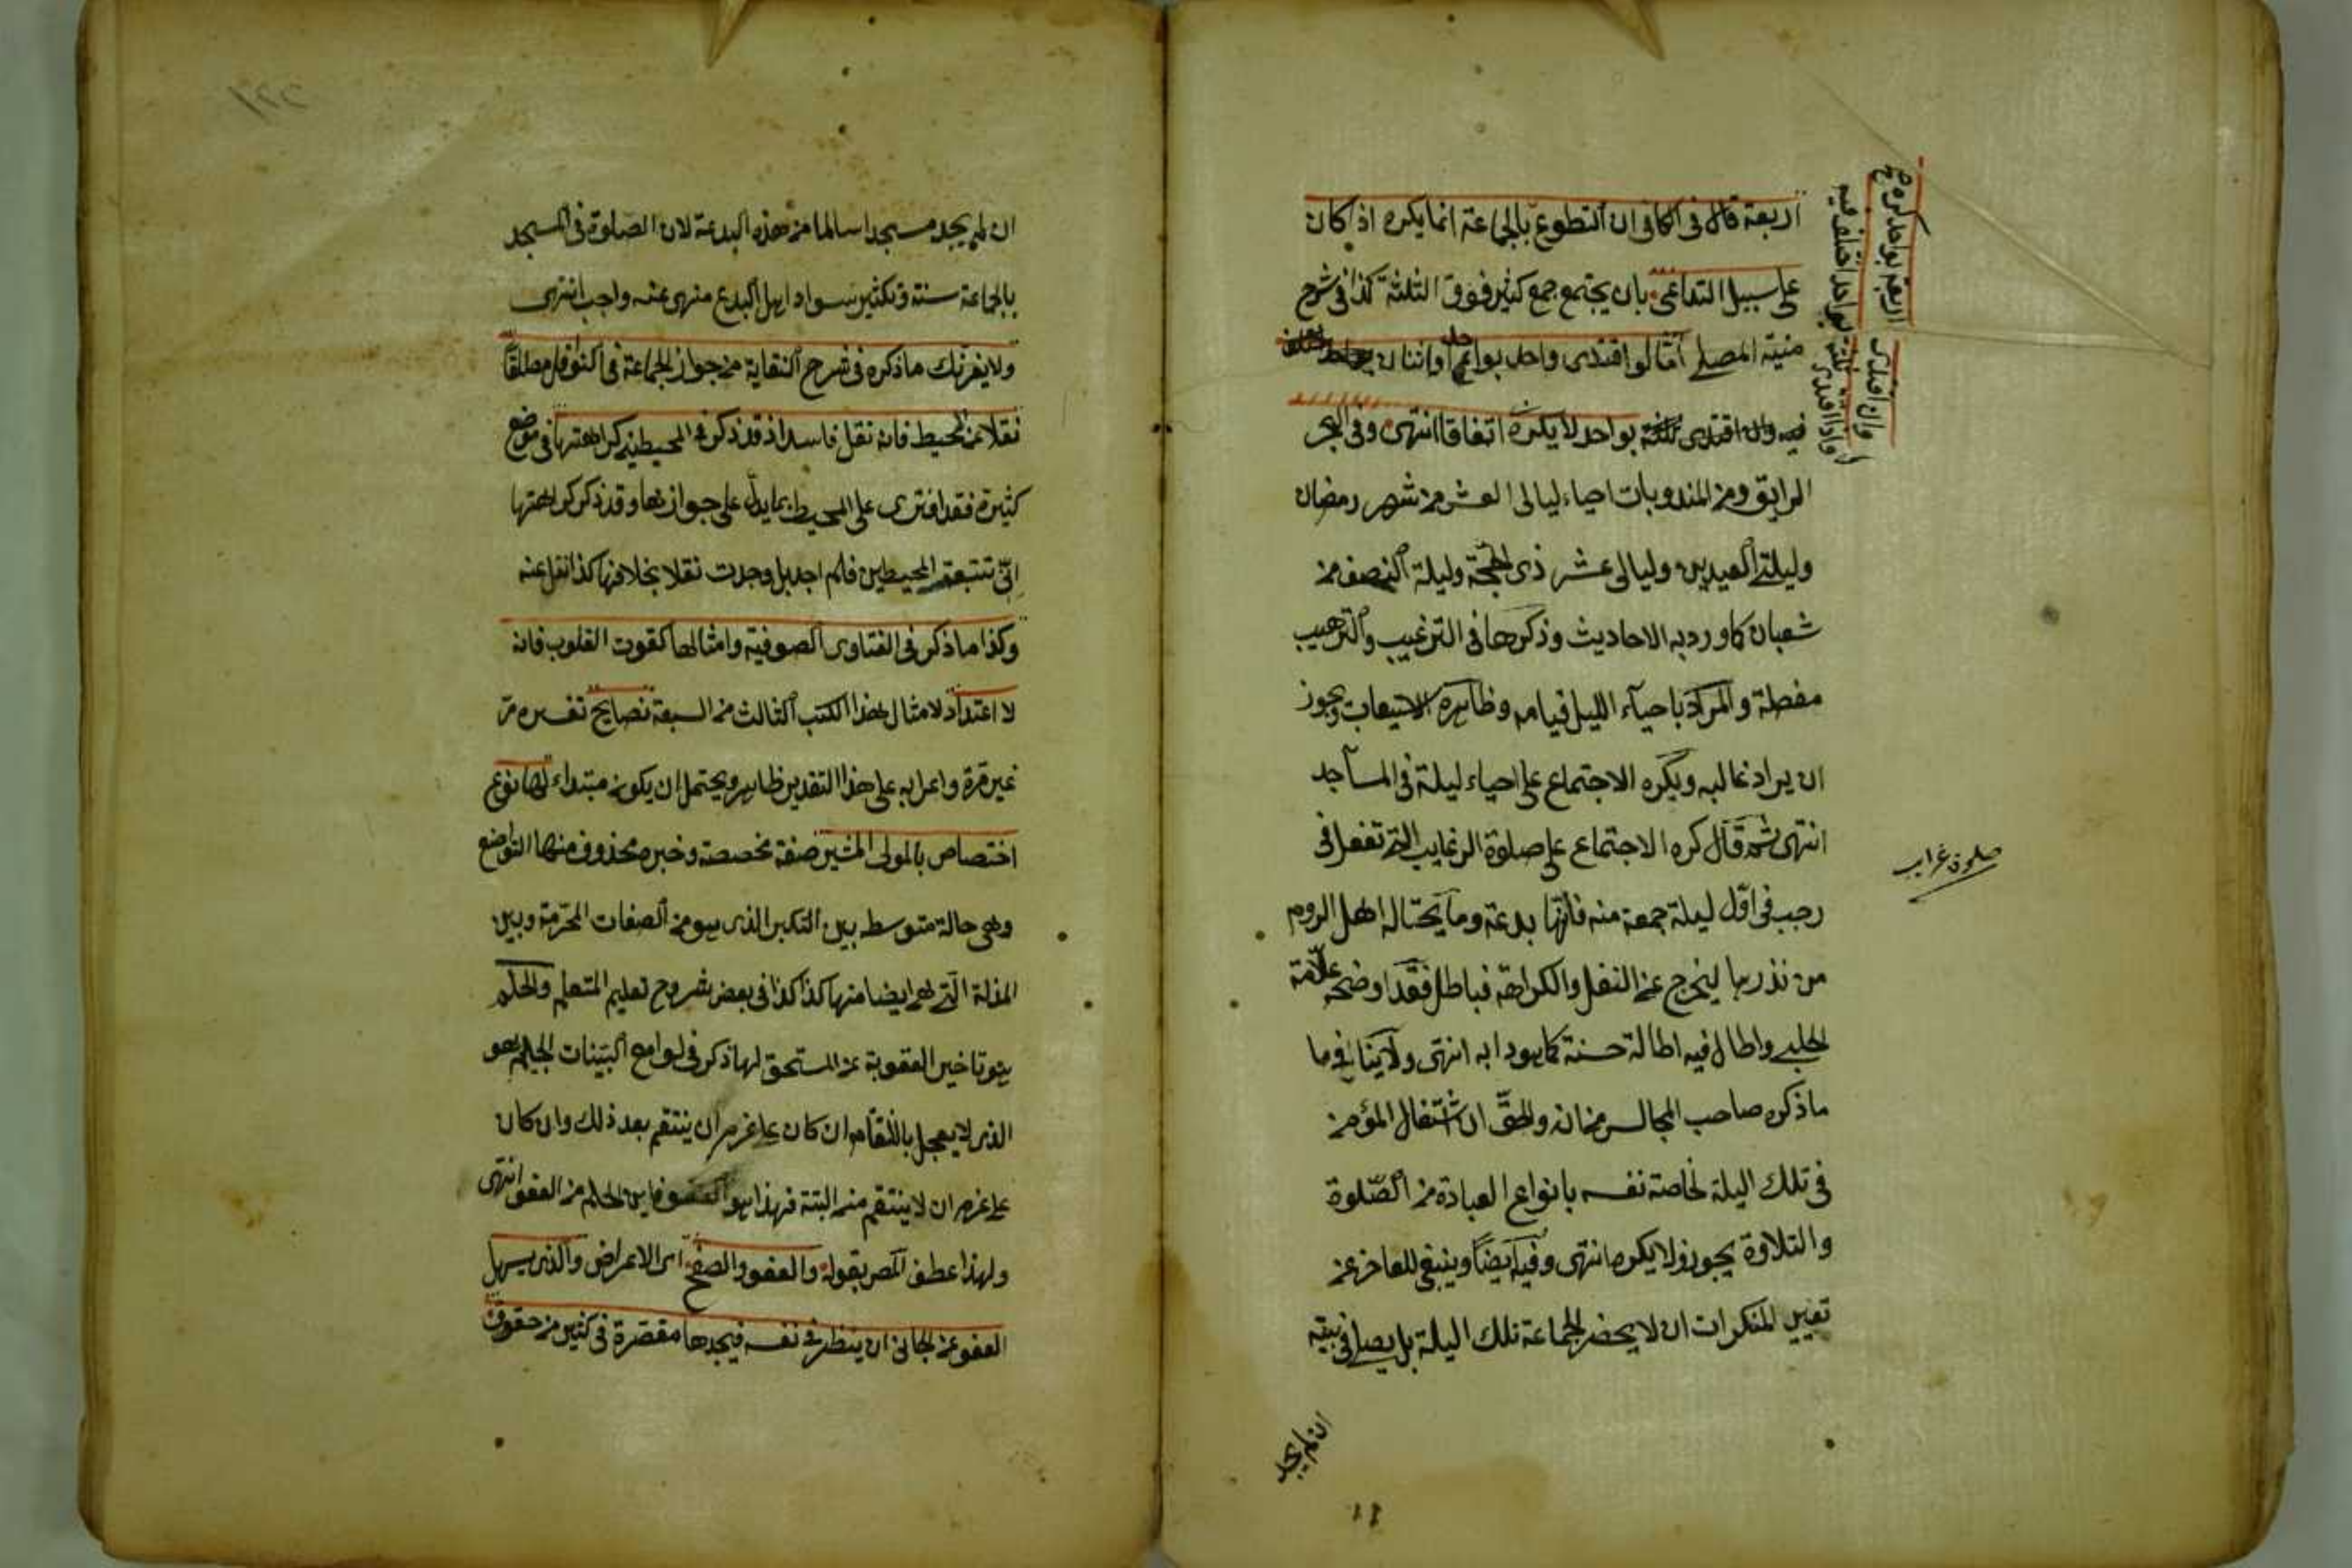 اربعة قال فى الكافى ان التطوع بالجماعة انما يكره اذ كان
على سبيل التداعى بان يجتمع جمع كثير فوق الثلثة كذا فى شرح
منية المصلى امّا لو اقتدى واحد بواحد او اثنان
فيه وان اقتدى ثلثة بواحد لا يكره اتفاقا انتهى وفى البحر
الرايق ومن المندوبات احياء ليالى العشر من شهر رمضان
وليلتى العيدين وليالى عشر ذى الحجة وليلة النصف من
شعبان كما ورد به الاحاديث وذكرها فى الترغيب والترهيب
مفصلة والمراد باحياء الليل قيامه وظاهره الاستيعاب ويجوز
ان يراد غالبه ويكره الاجتماع على احياء ليلة فى المساجد
انتهى ثم قال كره الاجتماع على صلوة الرغايب التى تفعل فى
رجب فى اوّل ليلة جمعة منه فانّها بدعة وما يحتاله اهل الروم
من نذرها ليخرج عن النفل والكراهة فباطل فقد اوضحه علّامة
الحلبى واطال فيه اطالة حسنة كما هو دابه انتهى ولا ينافى ما
ما ذكره صاحب المجالس من انه والحقّ ان اشتغال المؤمن
فى تلك اليلة لخاصة نفسه بانواع العبادة من الصّلوة
والتلاوة يجوز ولا يكره انتهى وفيه ايضًا وينبغى للعاجز عن
تغيير المنكرات ان لا يحضر الجماعة تلك اليلة بل يصلى فى بيته
ان لم يجد
اربعة بواحد كره
وان اقتدى
بواحد اختلف فيه
واذا اقتدى ثلثة
صلوة غرايب
١٢٢
ان لم يجد مسجدا سالما من هذه البدعة لان الصلوة فى المسجد
بالجماعة سنة وتكثير سواد اهل البدع منهى عنه واجب انتهى
ولا يغرنك ما ذكره فى شرح النقاية من جواز الجماعة فى النوافل مطلقًا
نقلا عن المحيط فانه نقل فاسد اذ قد ذكر فى المحيطين كراهتها فى موضع
كثيرة فقد افترى على المحيط بما يدل على جوازها وقد ذكر كراهتها
انّى تتبعت المحيطين فلم اجد بل وجدت نقلا بخلافها كذا نقل عنه
وكذا ما ذكر فى الفتاوى الصوفية وامثالها كقوت القلوب فانه
لا اعتداد لامثال هذا الكتب الثالث من السبعة نصايح تفسيره مرّ
غير مرة واعرابه على هذا التقدير ظاهر ويحتمل ان يكون مبتداء لها نوع
اختصاص بالمولى المشير صفة مخصصة وخبره محذوف منها التواضع
وهى حالة متوسطه بين التكبر الذى هو من الصفات المحرّمة وبين
المذلة التى هى ايضا منها كذا كذا فى بعض شروح تعليم المتعلم والحلم
هو تاخير العقوبة عن المستحق لها ذكر فى لوامع البيّنات الحليم هو
الذى لا يعجل بالانتقام ان كان على عزم ان ينتقم بعد ذلك وان كان
على عزم ان لا ينتقم منه البتة فهذا هو العفو فاين الحلم من العفو انتهى
ولهذا عطف المص بقوله والعفو والصفح اى الاعراض والذى يسهل
العفو عن الجانى ان ينظر فى نفسه فيجدها مقصّرة فى كثير من حقوق